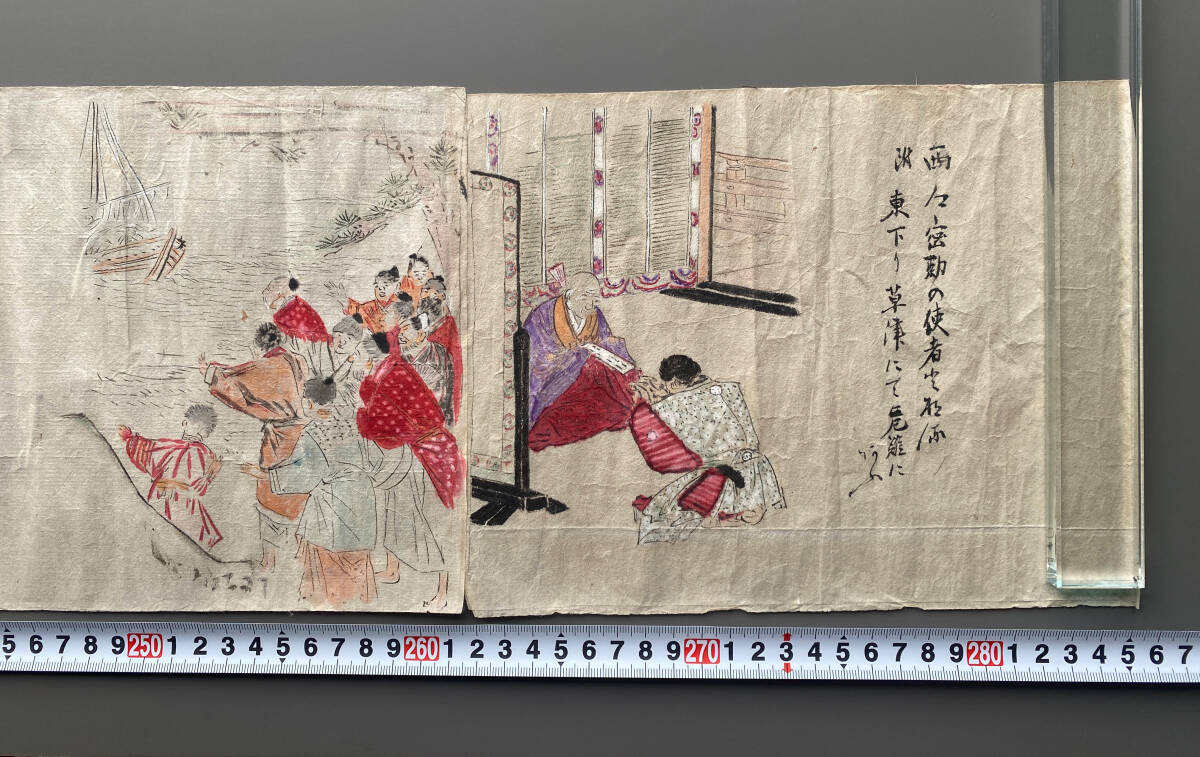 西 密勅の使者
附 東下り草津にて危難に
あふ
5 6 7 8 9 250 1 2 3 4 5 6 7 8 9 260 1 2 3 4 5 6 7 8 9 270 1 2 3 4 5 6 7 8 9 280 1 2 3 4 5 6 7